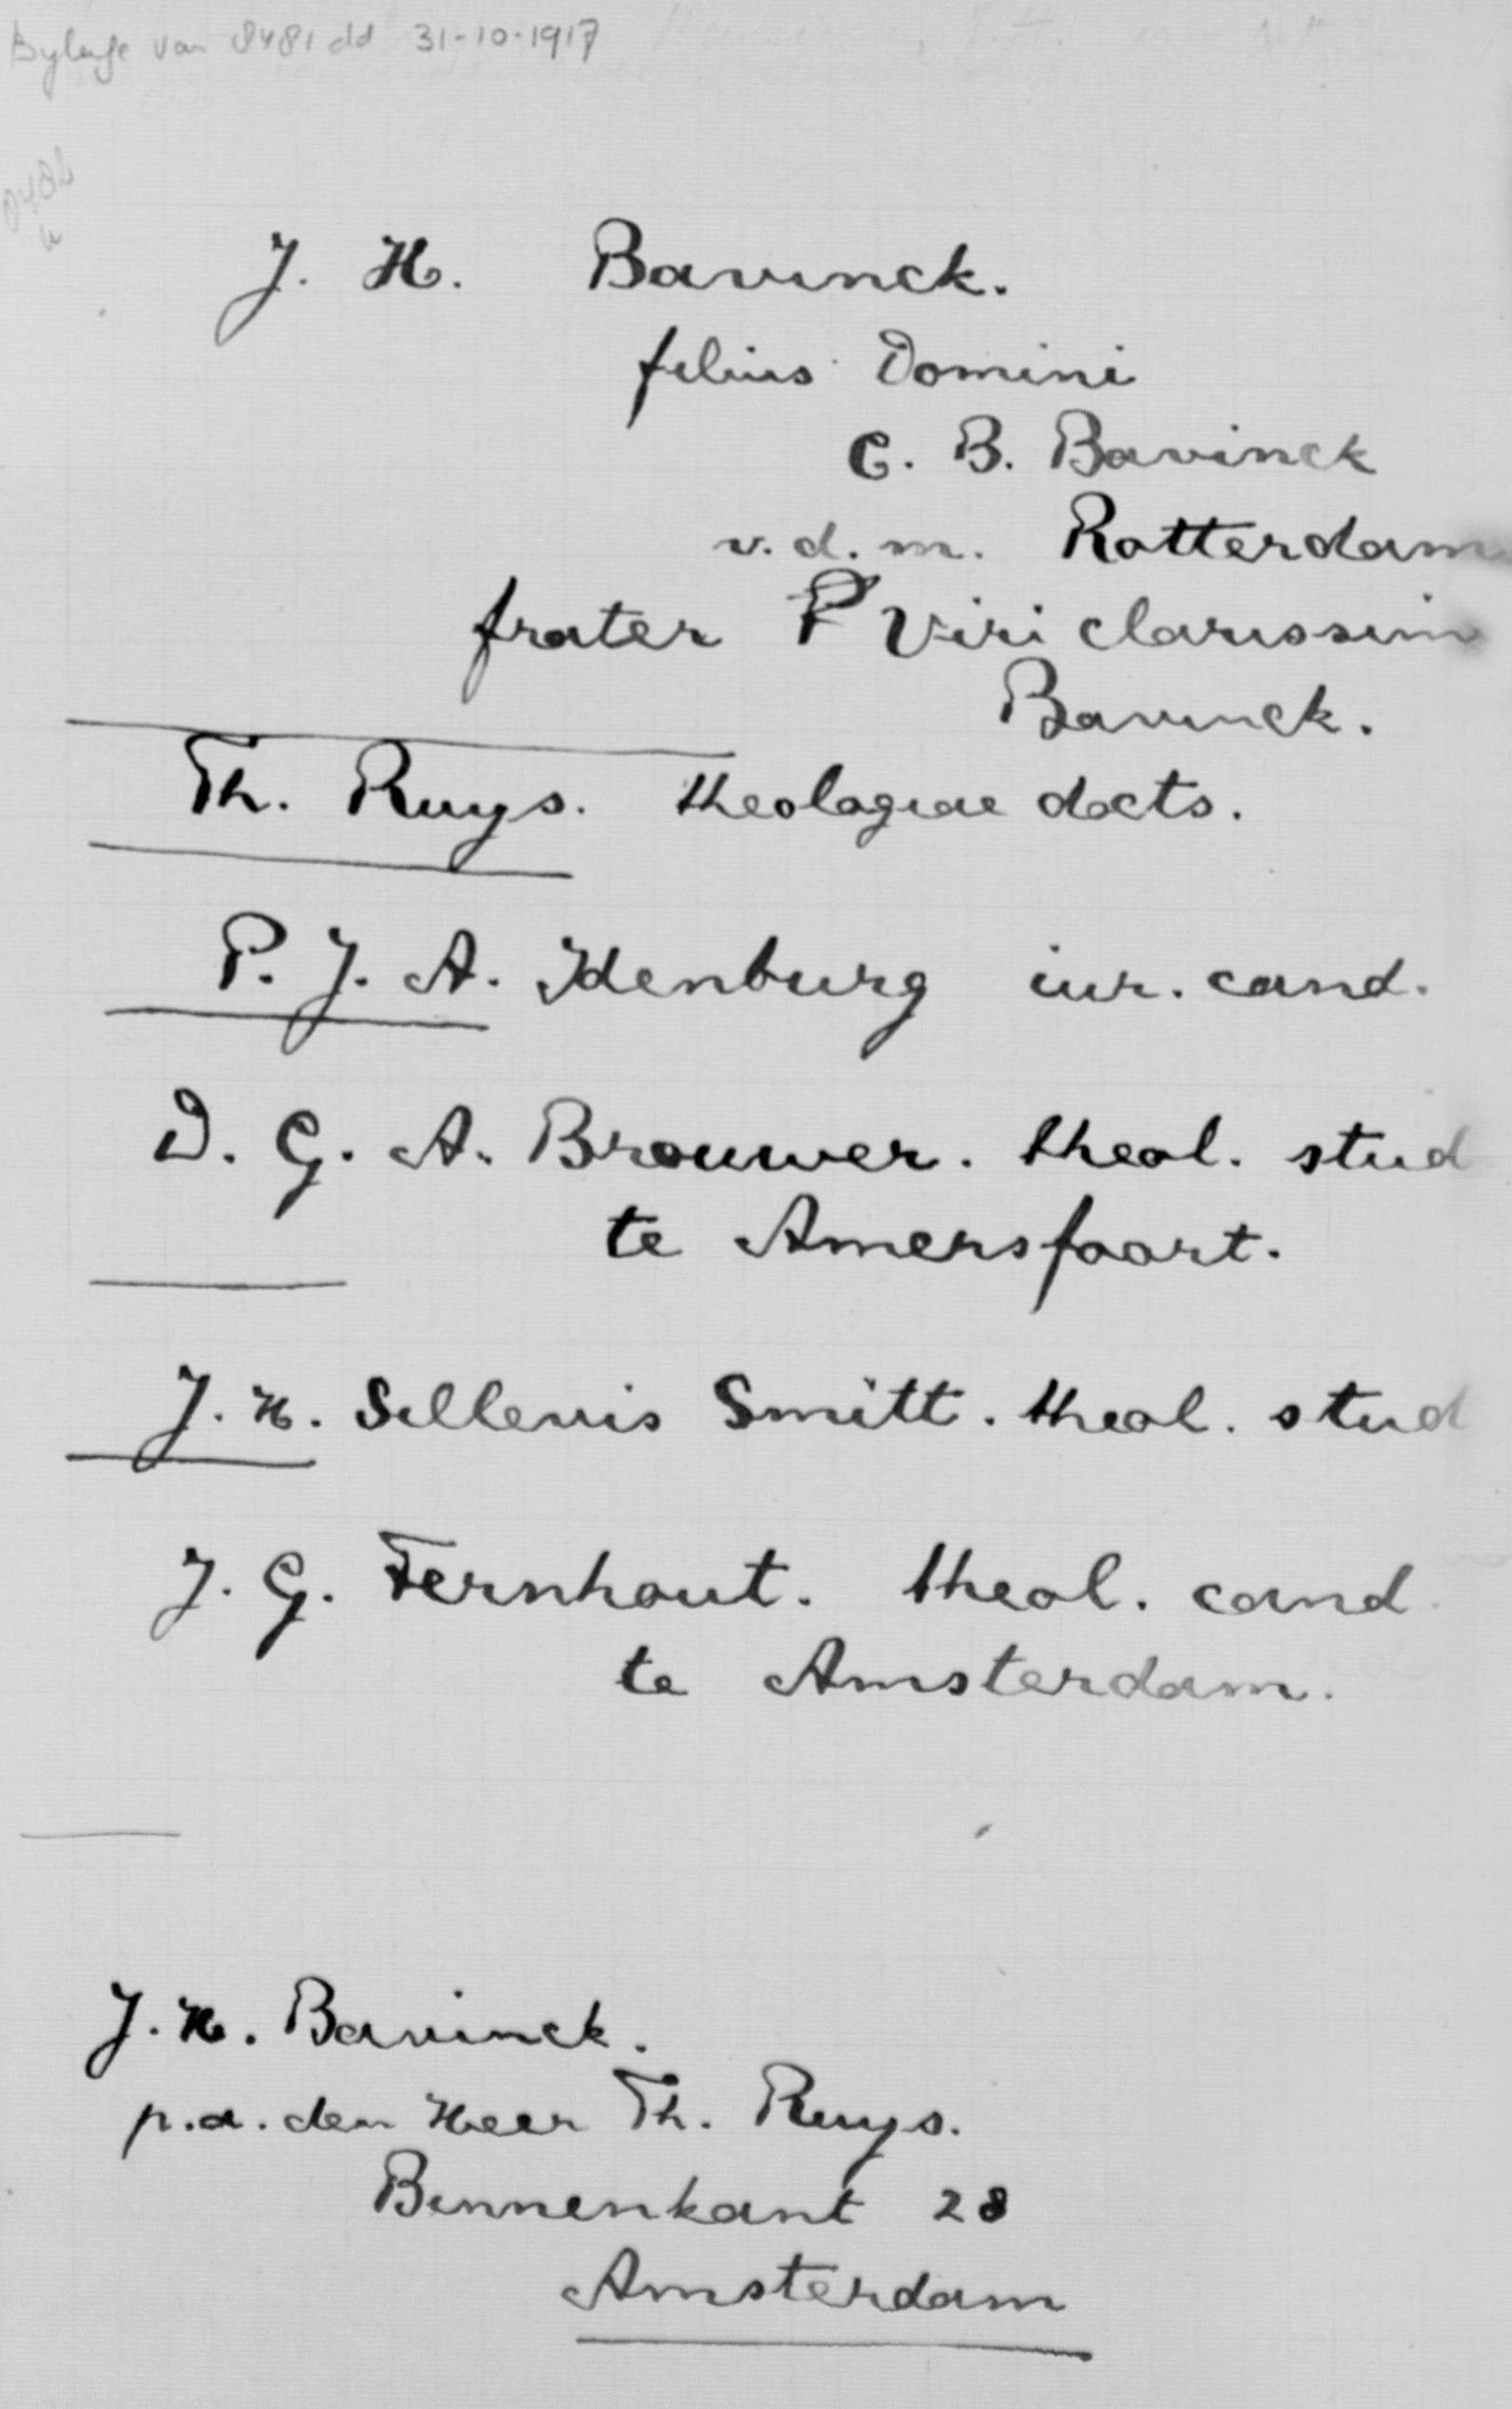 Bylage van 8481 dd 31-10-1917
J. H. Bavinck.
filius Domini
C. B. Bavinck
v.d.m. Rotterdam
frater P Viri clarissimi
Bavinck.
Th. Ruys. theologiae docts.
P. J. A. Idenburg iur. cand.
D. G. A. Brouwer. theol. stud
te Amersfoort.
J. H. Sillevis Smitt. theol. stud
J. G. Fernhout. theol. cand.
te Amsterdam.
J. H. Bavinck.
p.a. den Heer Th. Ruys.
Binnenkant 28
Amsterdam